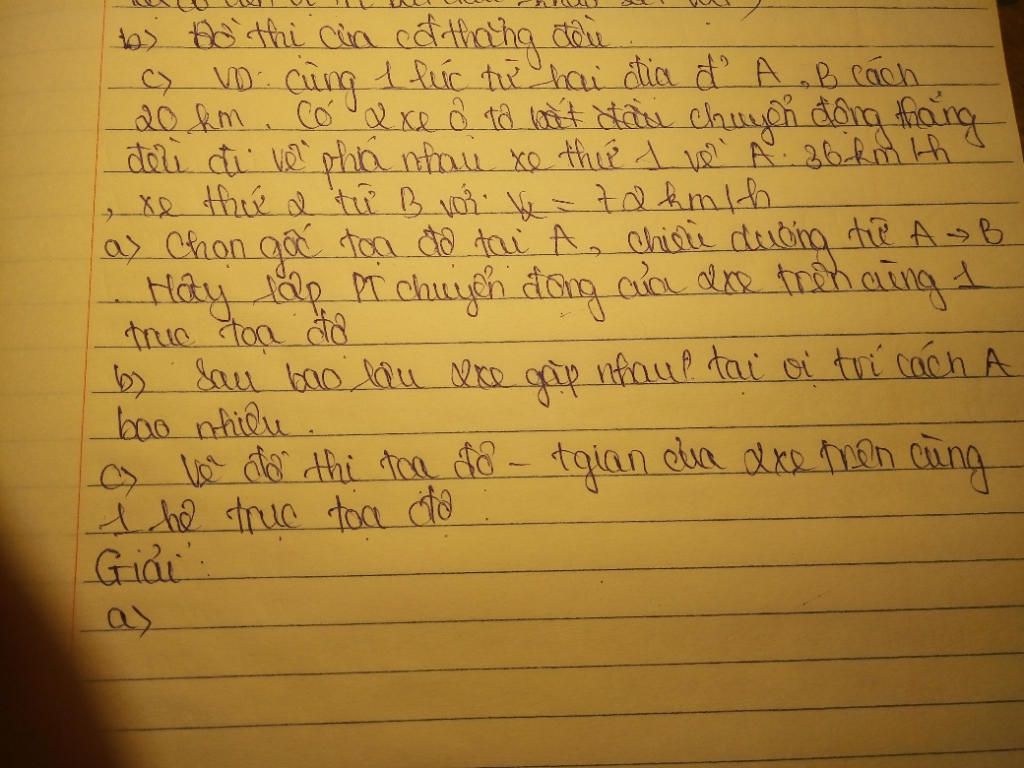 b) Đồ thị của cđ thẳng đều.
c) VD: cùng 1 lúc từ hai địa đ' A, B cách
20 km. Có 2 xe ô tô chuyển động thẳng
đều đi về phía nhau xe thứ 1 về A. 36 km/h
, xe thứ 2 từ B với = 72 km/h
a) Chọn gốc tọa độ tại A, chiều dương từ A → B
. Hãy lập PT chuyển động của 2xe trên cùng 1
trục tọa độ
b) Sau bao lâu 2xe gặp nhau? tại vị trí cách A
bao nhiêu.
c) Vẽ đồ thị tọa độ - tgian của 2xe trên cùng
1 hệ trục tọa độ.
Giải:
a)